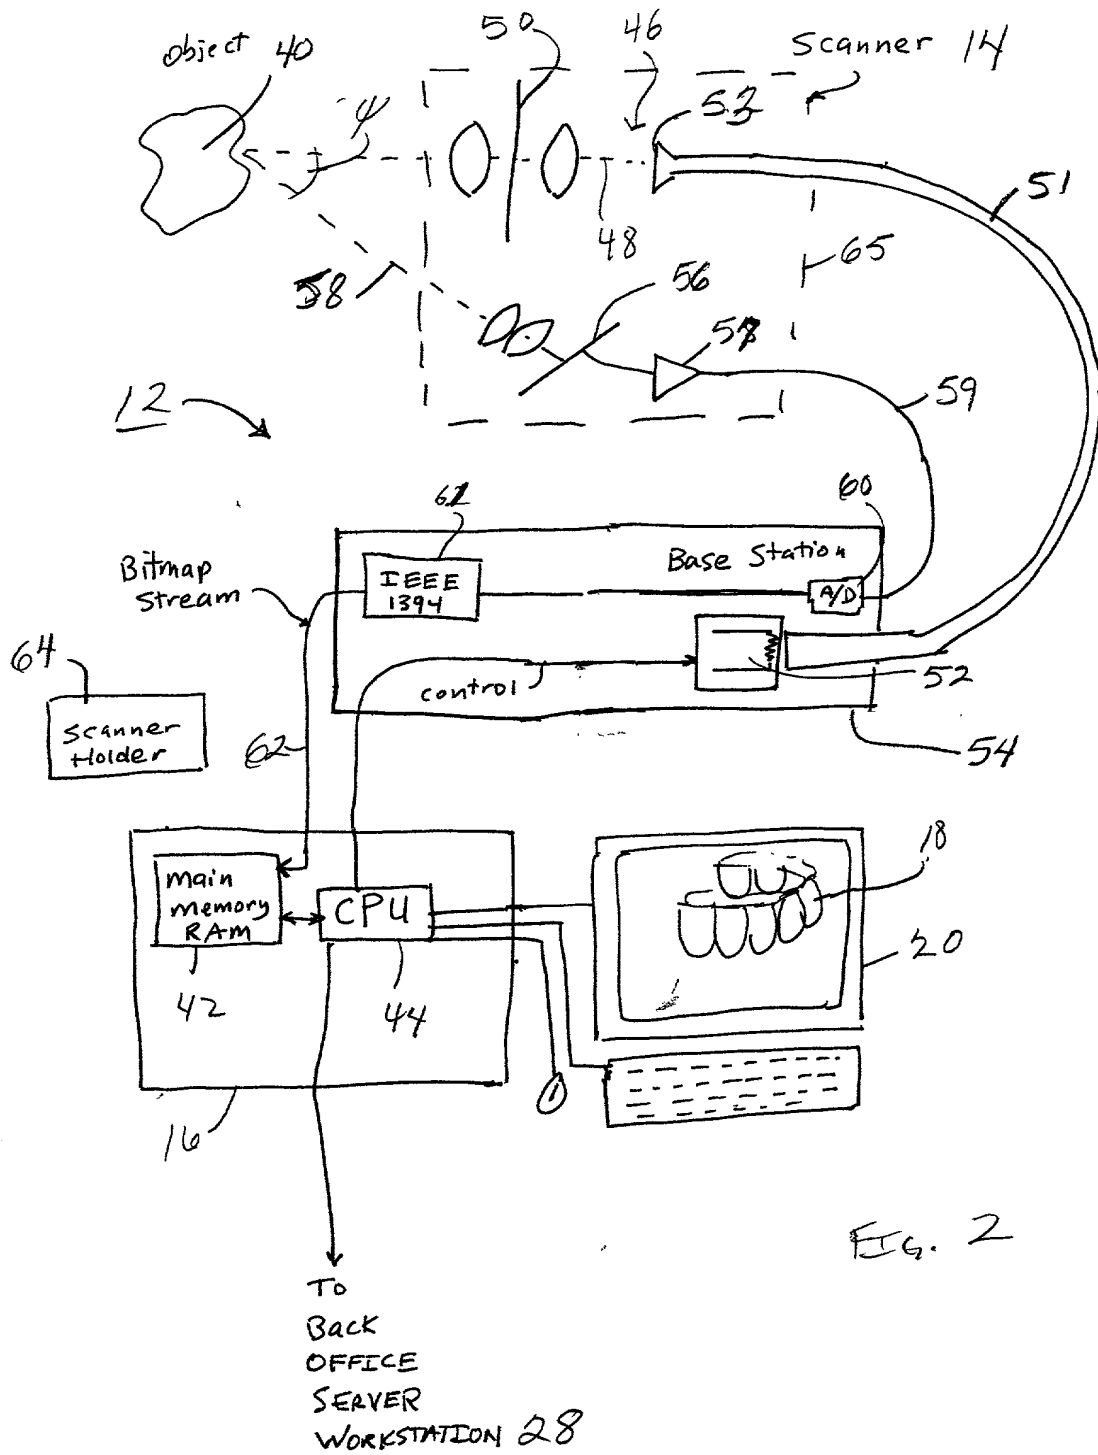 object 40
50
46
Scanner 14
53
φ
51
48
65
58
56
57
59
12
61
60
Bitmap
Stream
IEEE
1394
Base Station
A/D
64
control
52
Scanner
Holder
62
54
18
Main
Memory
RAM
CPU
20
42
44
16
FIG. 2
To
Back
OFFICE
SERVER
WORKSTATION 28